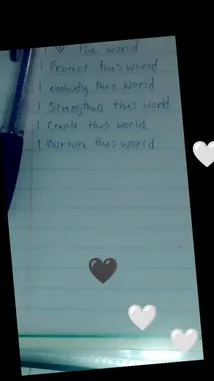 I ♡ the world
I Protect this world
I embody this world
I Strengthen this world
I Create this world
I Nurture this world